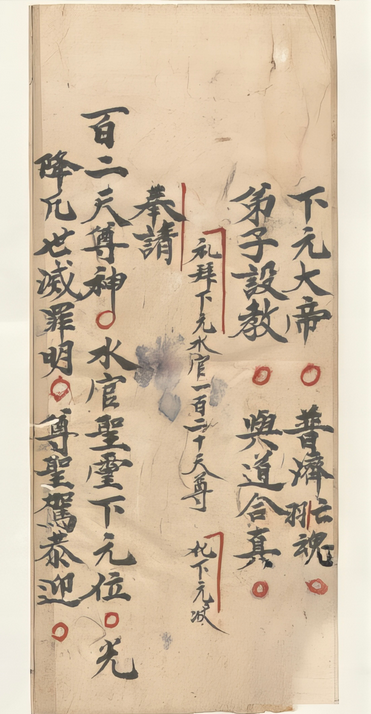 下元大帝 普濟亡魂
弟子設教 與道合真
礼拜下元水官一百二十天尊 礼下元
奉請
百二天尊神 水官聖靈下元位 光
降凡世滅罪明 尊聖駕恭迎